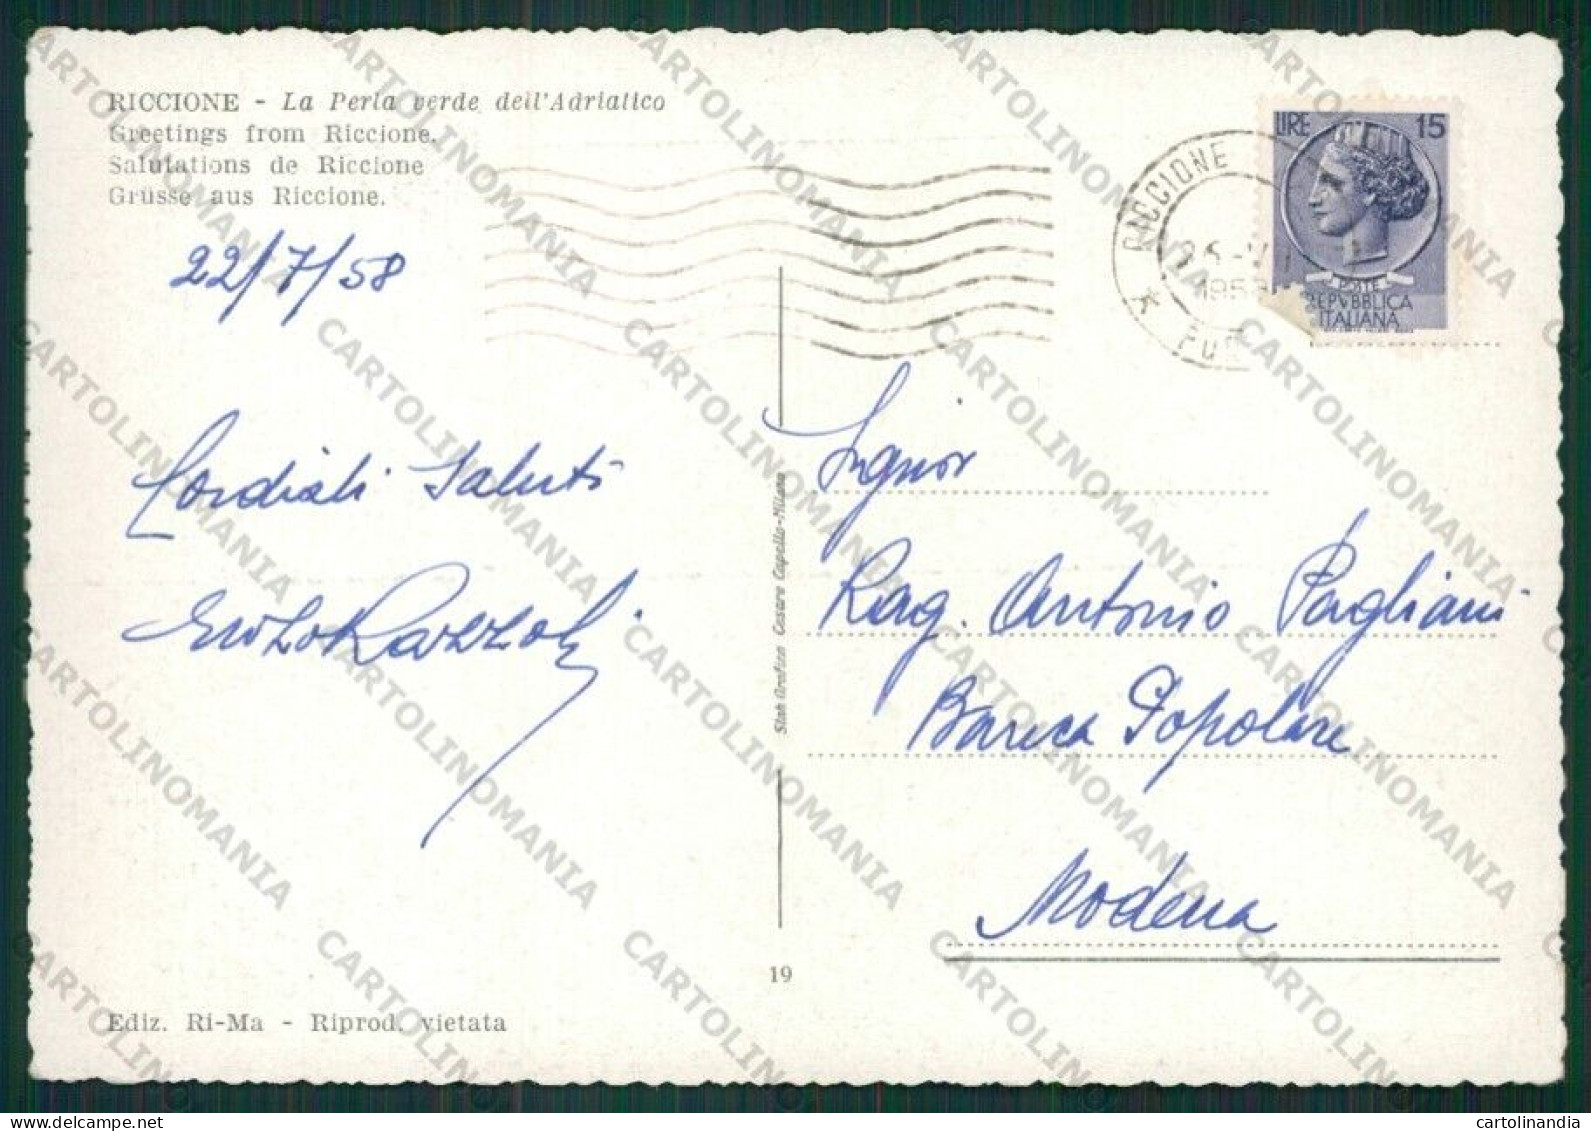 RICCIONE - La Perla verde dell'Adriatico
Greetings from Riccione.
Salutations de Riccione
Grüsse aus Riccione.
22/7/58
Cordiali Saluti
Enzo Razzoli
Ediz. Ri-Ma - Riprod. vietata
Stab Grafico Cesare Capello-Milano
19
RICCIONE
1958
LIRE 15
POSTE
REPVBBLICA
ITALIANA
Signor
Rag. Antonio Pagliani
Banca Popolare
Modena
CARTOLINOMANIA
cartolinomania.com
cartolinandia